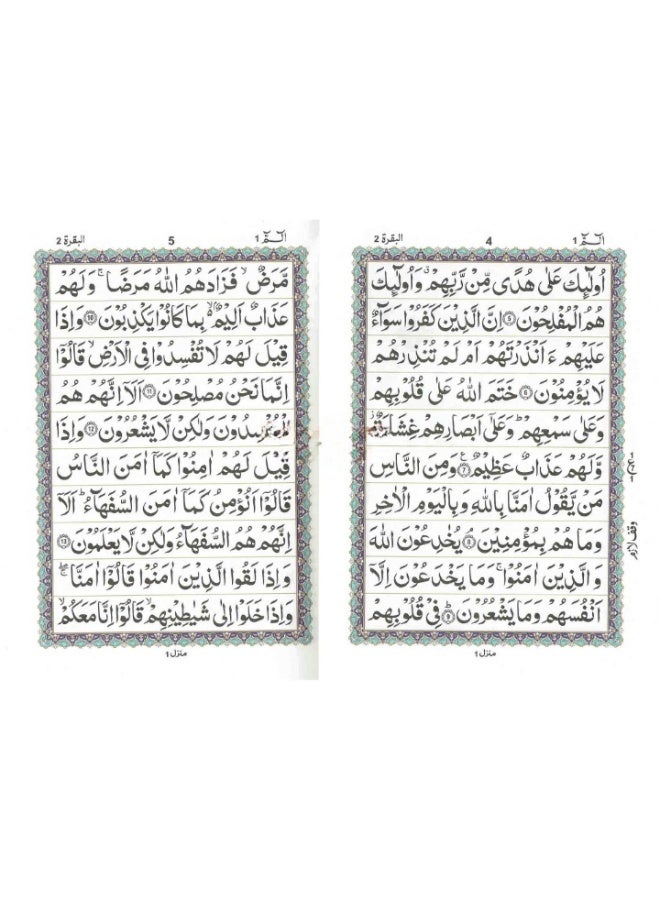 الٓمّٓ ١
4
البقرة ٢
اُولٰٓئِكَ عَلٰى هُدًى مِّنْ رَّبِّهِمْ ۙ وَاُولٰٓئِكَ
هُمُ الْمُفْلِحُوْنَ ۝٥ اِنَّ الَّذِيْنَ كَفَرُوْا سَوَآءٌ
عَلَيْهِمْ ءَاَنْذَرْتَهُمْ اَمْ لَمْ تُنْذِرْهُمْ
لَا يُؤْمِنُوْنَ ۝٦ خَتَمَ اللّٰهُ عَلٰى قُلُوْبِهِمْ
وَعَلٰى سَمْعِهِمْ ؕ وَعَلٰٓى اَبْصَارِهِمْ غِشَاوَةٌ
وَّلَهُمْ عَذَابٌ عَظِيْمٌ ۝٧ وَمِنَ النَّاسِ
مَنْ يَّقُوْلُ اٰمَنَّا بِاللّٰهِ وَبِالْيَوْمِ الْاٰخِرِ
وَمَا هُمْ بِمُؤْمِنِيْنَ ۝٨ يُخٰدِعُوْنَ اللّٰهَ
وَالَّذِيْنَ اٰمَنُوْا ۚ وَمَا يَخْدَعُوْنَ اِلَّآ
اَنْفُسَهُمْ وَمَا يَشْعُرُوْنَ ۝٩ فِيْ قُلُوْبِهِمْ
وقف لازم
منزل ١
الٓمّٓ ١
5
البقرة ٢
مَّرَضٌ ۙ فَزَادَهُمُ اللّٰهُ مَرَضًا ۚ وَلَهُمْ
عَذَابٌ اَلِيْمٌ ۢ ۙ بِمَا كَانُوْا يَكْذِبُوْنَ ۝١٠ وَاِذَا
قِيْلَ لَهُمْ لَا تُفْسِدُوْا فِى الْاَرْضِ ۙ قَالُوْٓا
اِنَّمَا نَحْنُ مُصْلِحُوْنَ ۝١١ اَلَآ اِنَّهُمْ هُمُ
الْمُفْسِدُوْنَ وَلٰكِنْ لَّا يَشْعُرُوْنَ ۝١٢ وَاِذَا
قِيْلَ لَهُمْ اٰمِنُوْا كَمَآ اٰمَنَ النَّاسُ
قَالُوْٓا اَنُؤْمِنُ كَمَآ اٰمَنَ السُّفَهَآءُ ؕ اَلَآ
اِنَّهُمْ هُمُ السُّفَهَآءُ وَلٰكِنْ لَّا يَعْلَمُوْنَ ۝١٣
وَاِذَا لَقُوا الَّذِيْنَ اٰمَنُوْا قَالُوْٓا اٰمَنَّا ۖ
وَاِذَا خَلَوْا اِلٰى شَيٰطِيْنِهِمْ ۙ قَالُوْٓا اِنَّا مَعَكُمْ ۙ
منزل ١